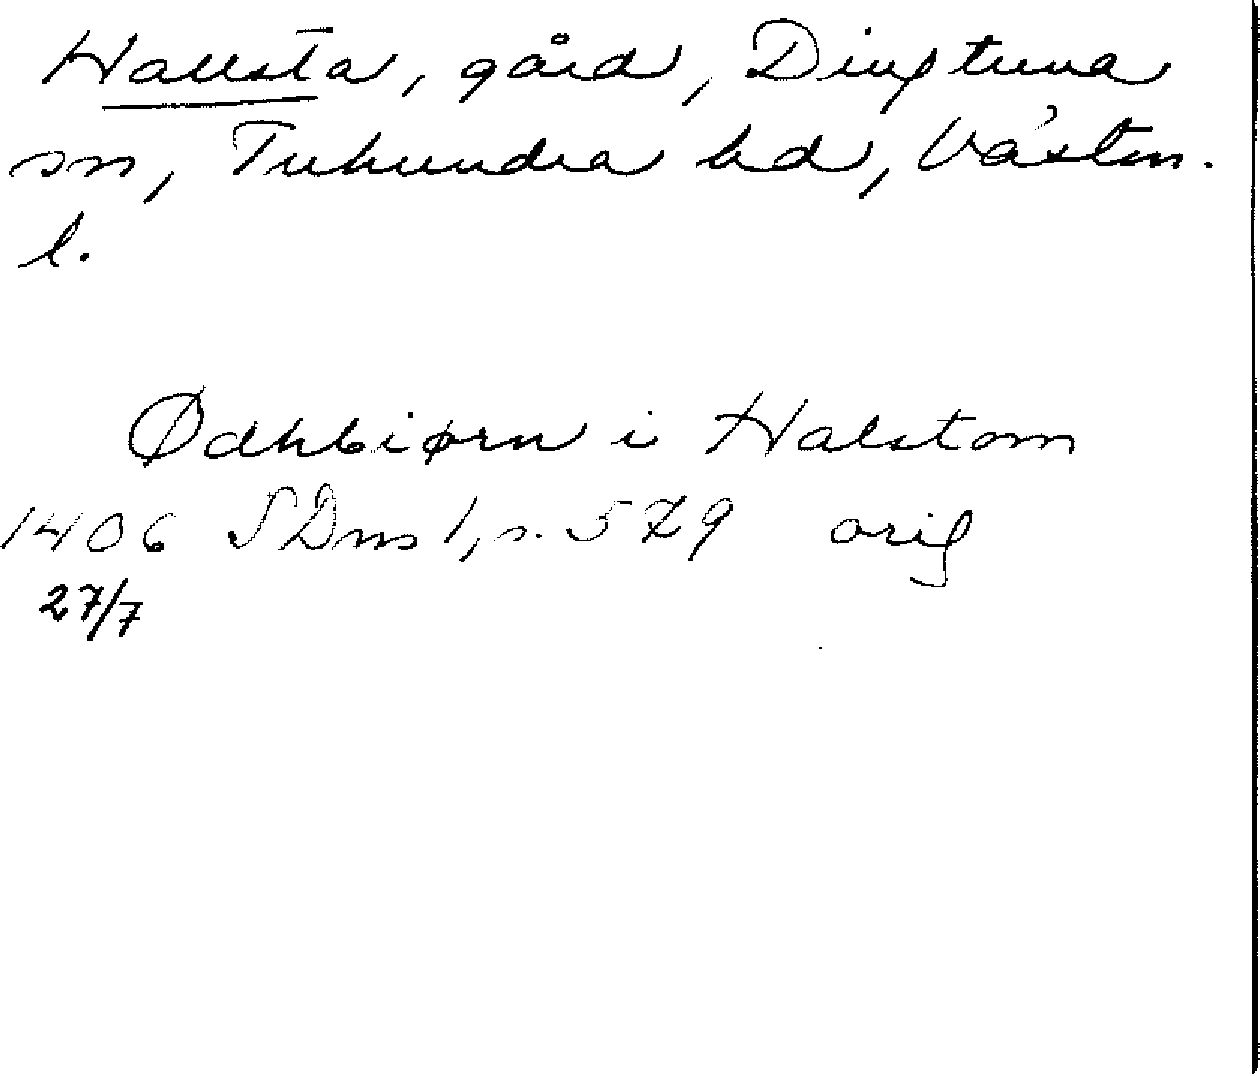 Hallsta, gård, Dingtuna
sn, Tuhundra hd, Västm.
l.
Ødhbiørn i Halstom
1406 SDns 1, s. 579 orig
27/7